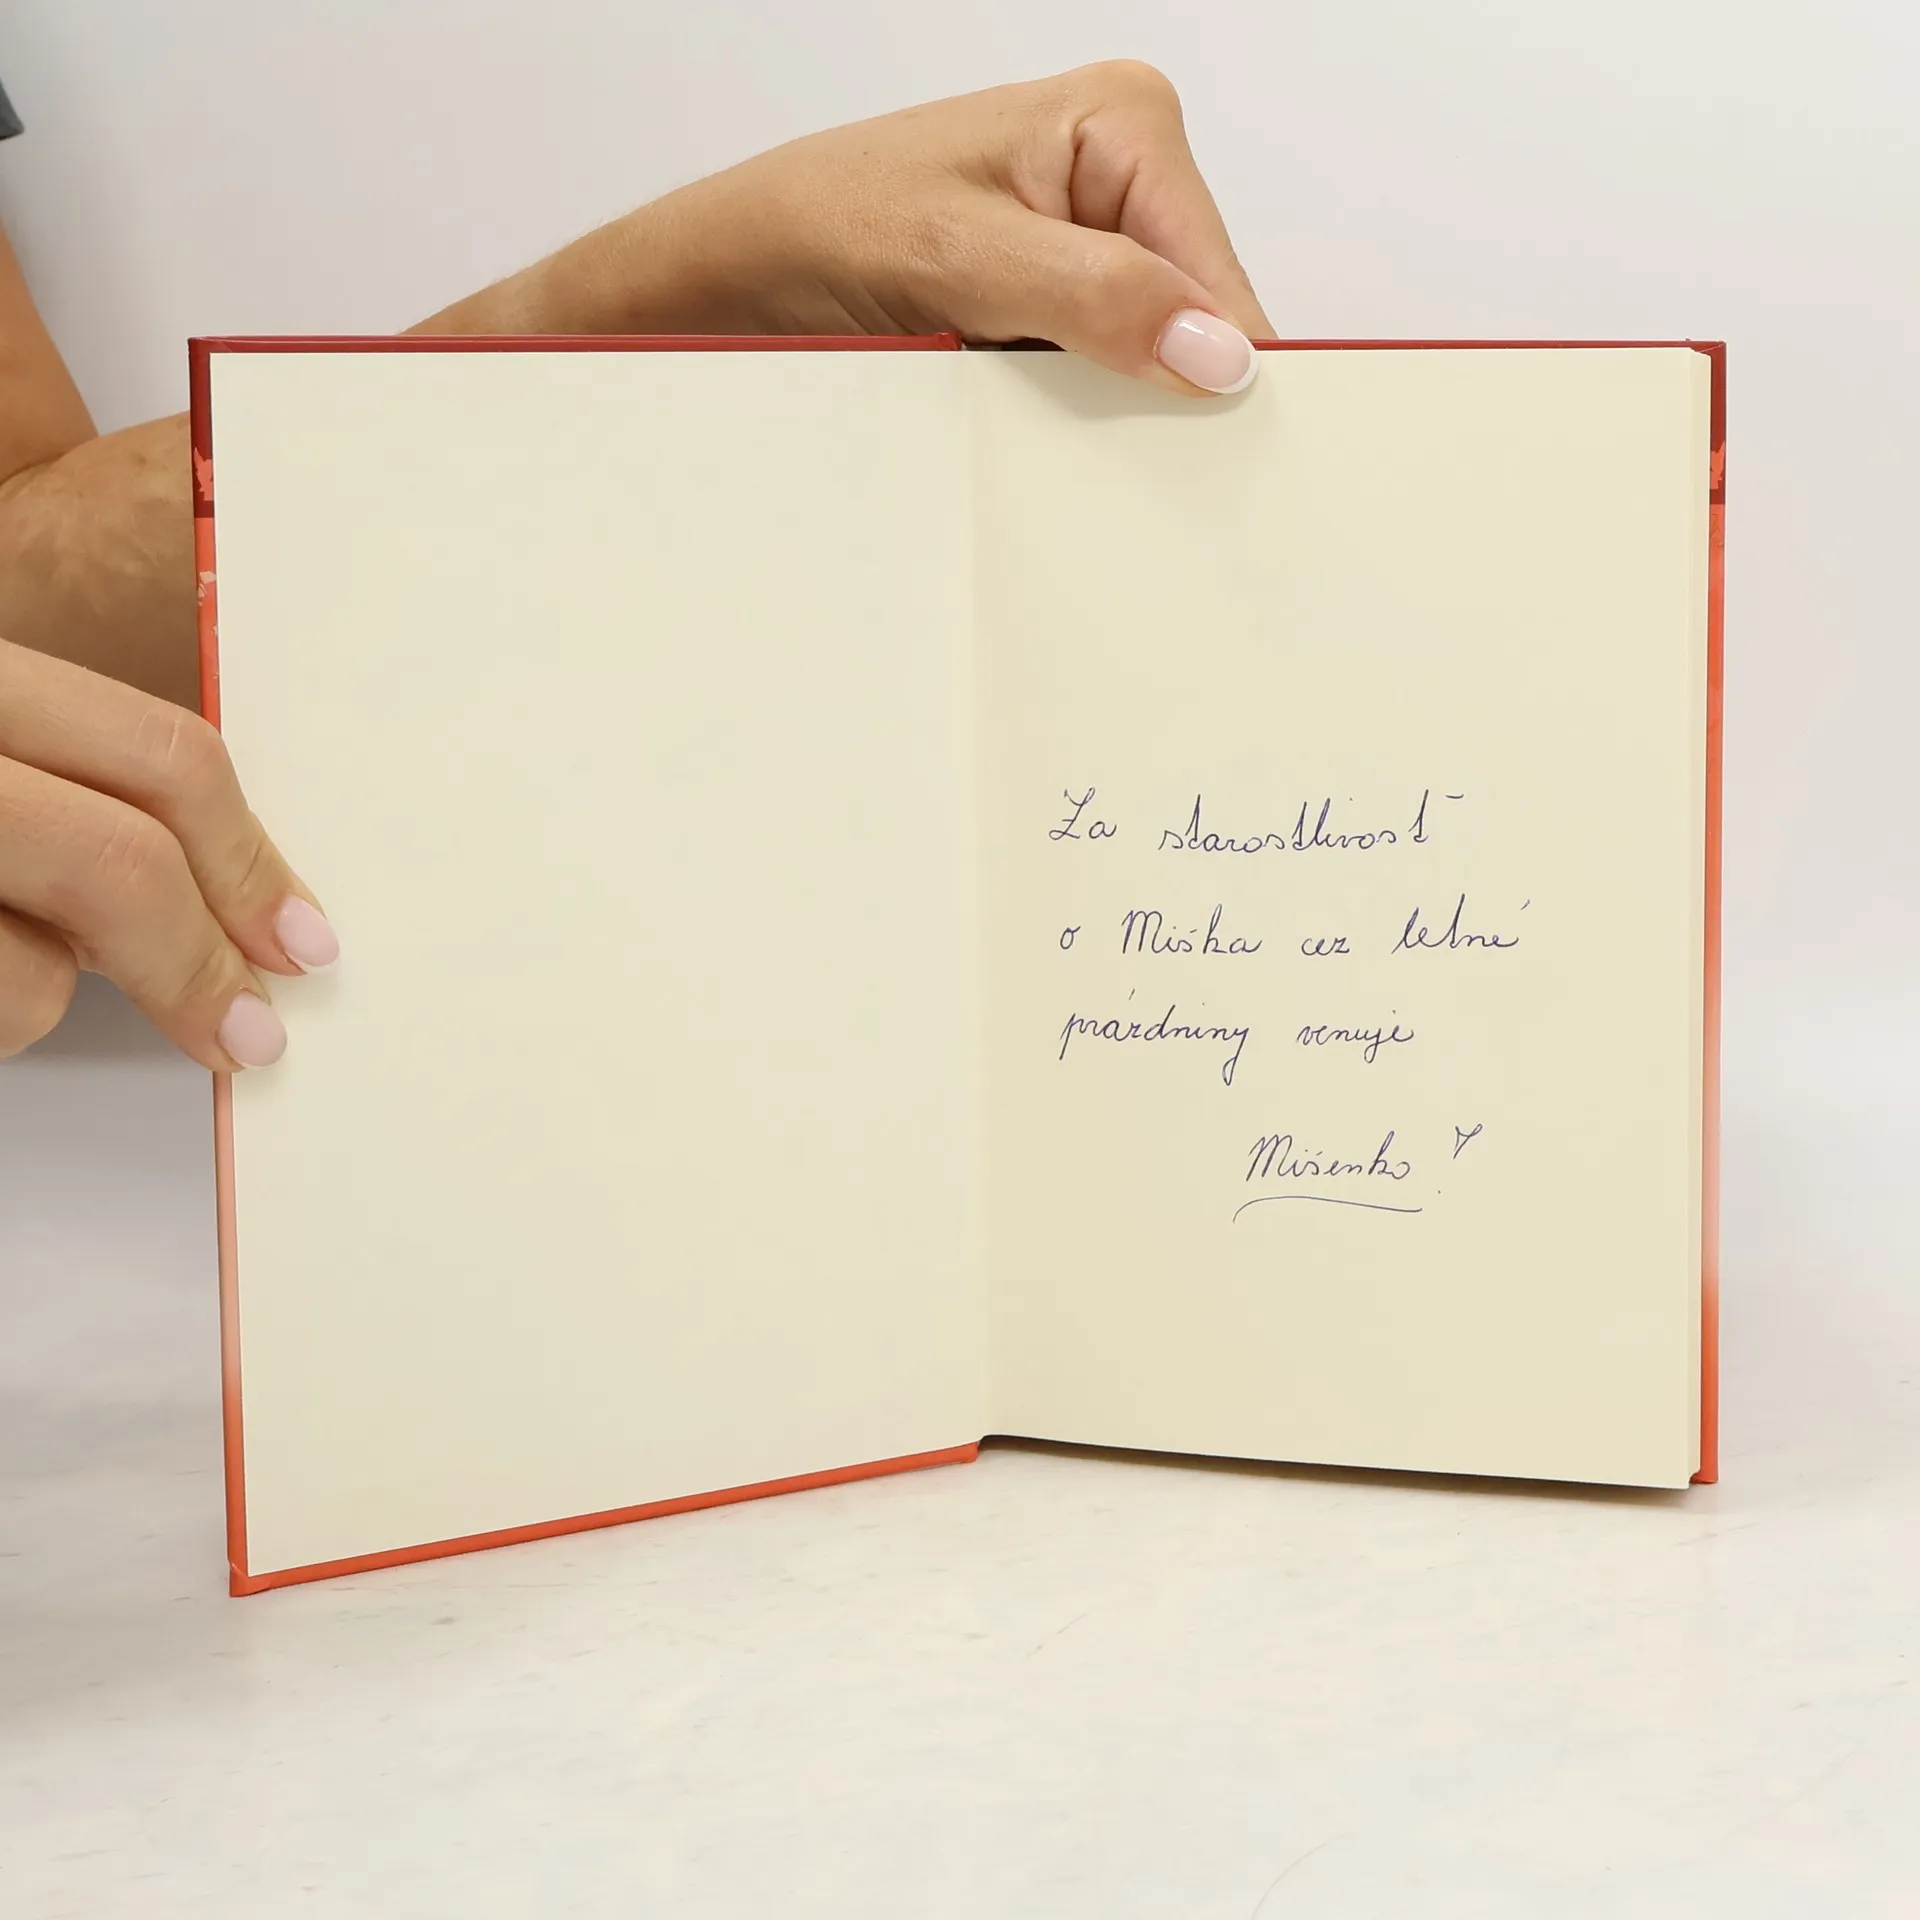 Za starostlivosť
o Miška cez letné
prázdniny venuje
Mišenko